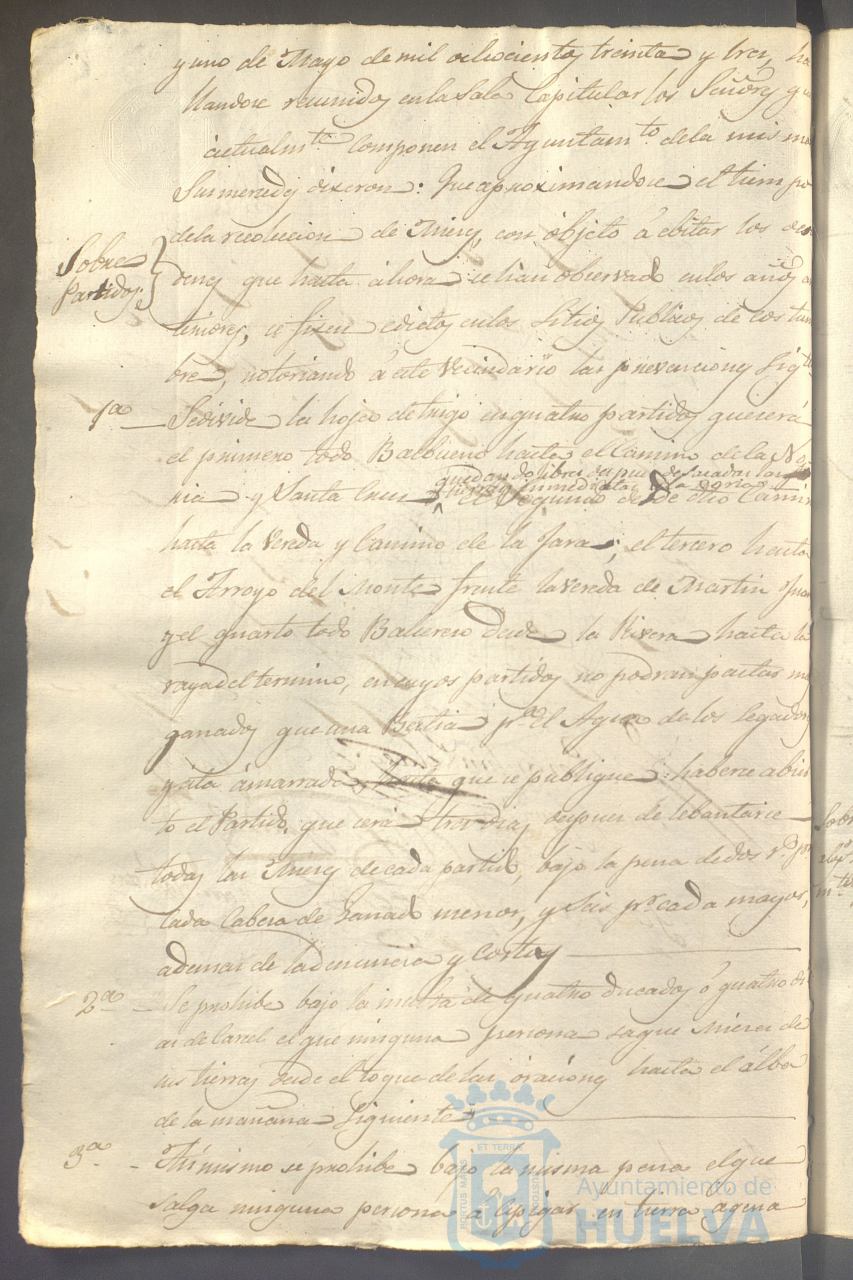 y uno de Mayo de mil ochocientos treinta y tres, ha
llandose reunidos en la Sala Capitular los Señores q
actualmte. componen el Ayuntamto. de la misma
Sus mercedes dixeron: Que aproximandose el tiempo
de la recoleccion de Mieses, con objeto á ebitar los desor
Sobre
Partidos
denes que hasta ahora se han observado en los años an
teriores, se fixen edictos en los Sitios Publicos de costum
bre, notoriando á este Vecindario las prevenciones Sigtes.
1a
Se divide la hoja de trigo en quatro partidos que será
el primero todo Balbueno hasta el Camino de la No
quedando libres despues de sacadas las
tierras inmediatas á la noria
ria y Santa Cruz el Segundo desde dho Camin
hasta la Vereda y Camino de la Jara; el tercero hasta
el Arroyo del Monte frente la vereda de Martin Jua
y el quarto todo desde la Rivera hasta la
raya del termino, en cuyos partidos no podran pastar m
ganados que una Bestia pa. el Agua de los Segadores
y esta amarrada hasta que se publique haberse abier
to el Partido, que será tres dias despues de lebantarse
todas las Mieses de cada partido, bajo la pena de dos rs. por
cada Cabeza de Ganado menor, y Seis pr. cada mayor,
ademas de la denuncia y Costas
2a
Se prohibe bajo la multa de quatro ducados ó quatro di
as de Carcel el que ninguna persona saque Mieses de
sus tierras desde el toque de las óraciones hasta el álba
de la mañana Siguiente
3a
Asimismo se prohibe bajo la misma pena el que
Salga ninguna persona á Espigar en tierra agena
Sobre
Ayuntamiento de
HUELVA